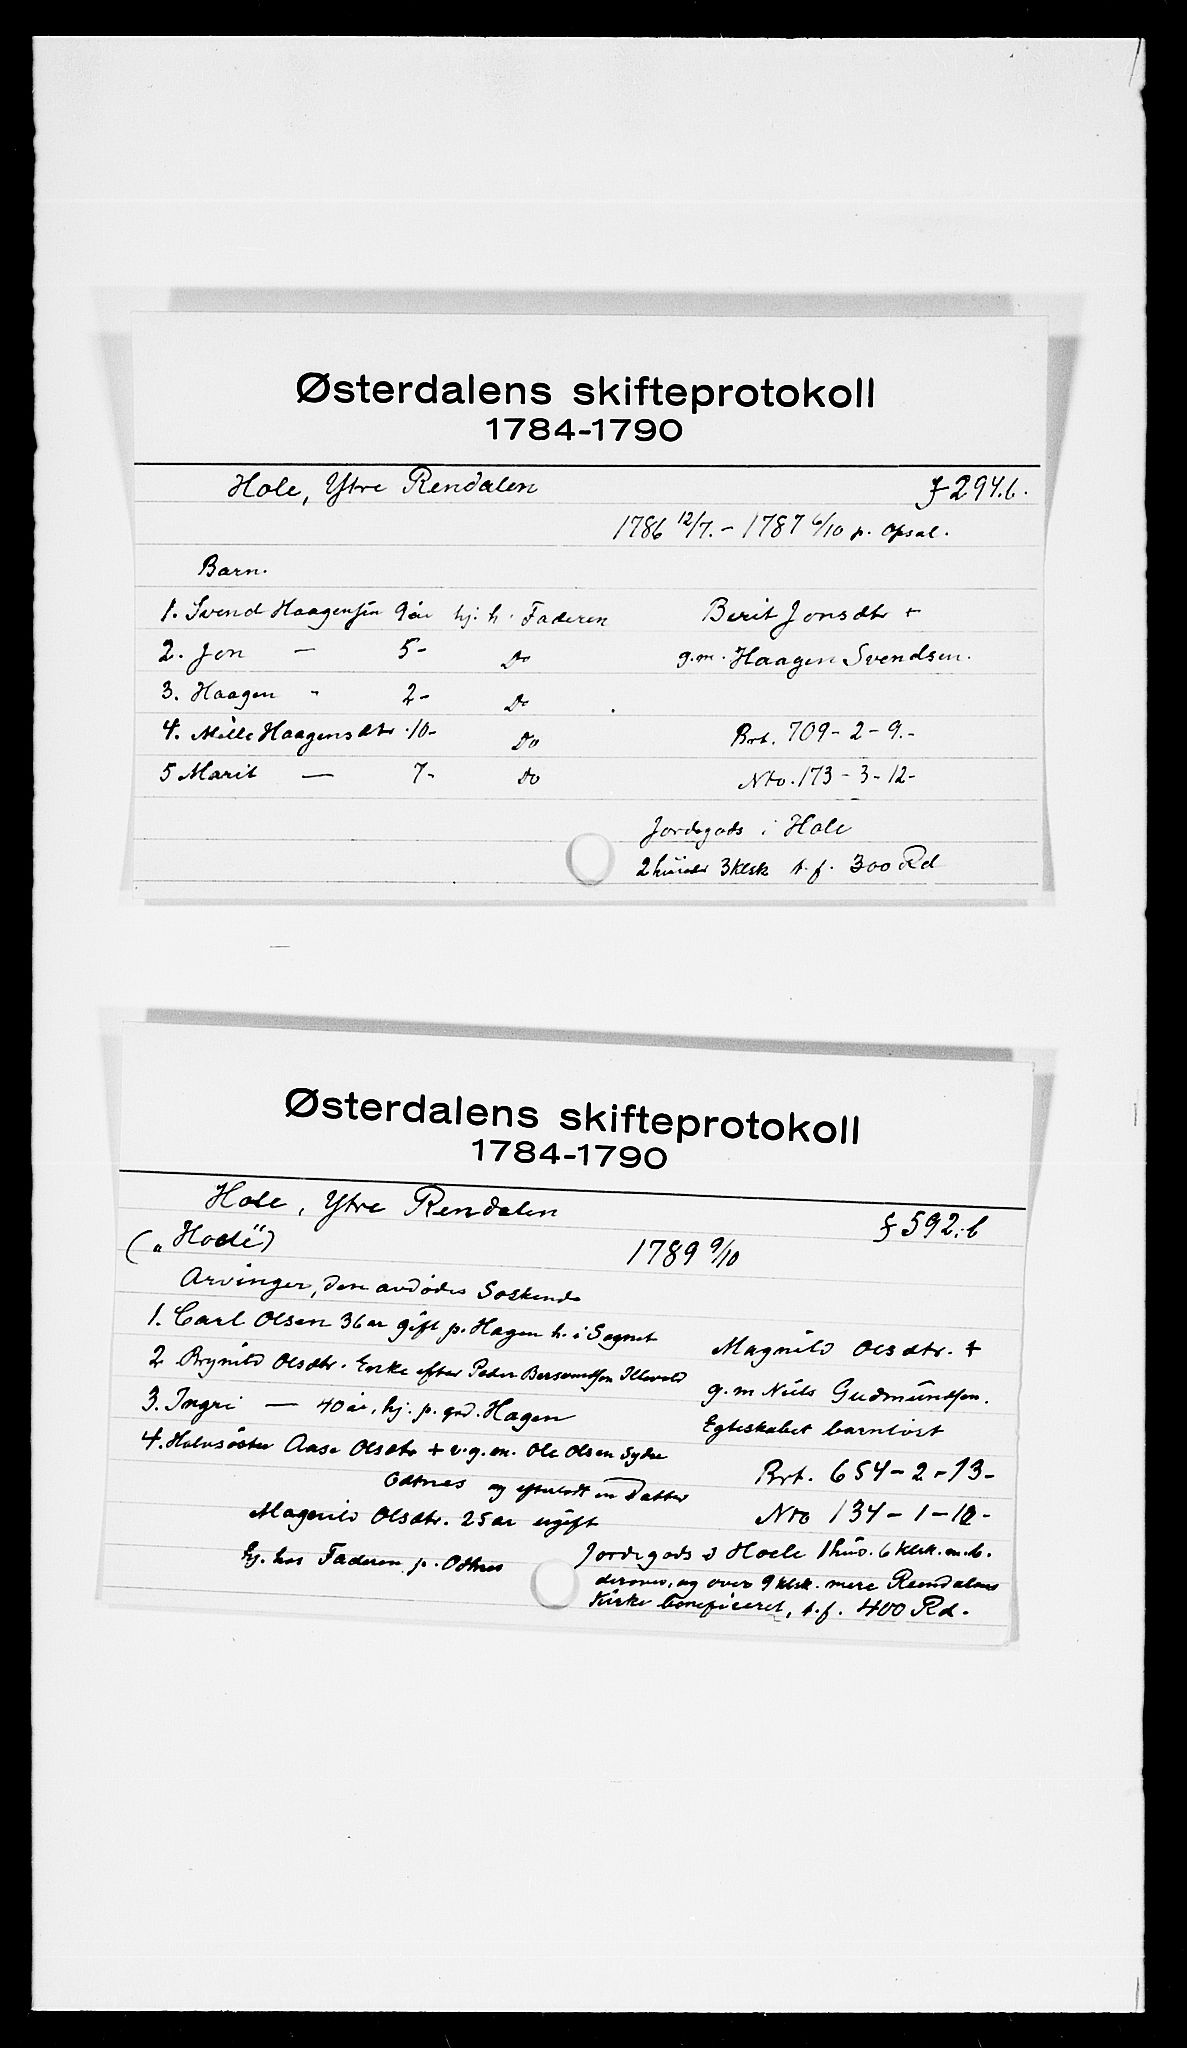 Østerdalens skifteprotokoll
1784-1790
Hole, Ytre Rendalen f 294.b.
1786 12/7. - 1787 6/10 p. Opsal.
Barn.
1. Svend Haagensen 9 år hj. h. Faderen Berit Jonsdtr +
2. Jon — 5- Do g.m. Haagen Svendsen.
3. Haagen " 2- Do
4. Mille Haagensdtr 10- Do Brt. 709-2-9.-
5 Marit — 7- Do Nto. 173-3-12-
Jordegods i Hole
2 huder 3 klsk t. f. 300 Rd
Østerdalens skifteprotokoll
1784-1790
Hole, Ytre Rendalen f 592.b
(„Hoele") 1789 9/10
Arvinger, den avdødes Søskende
1. Carl Olsen 36 år gift p. Hagen h. i Sognet
Magnild Olsdtr. +
2 Brynild Olsdtr. Enke efter Peder Bersvendsen Illevold
g.m Niels Gudmundsen.
3. Ingri — 40 år, hj. p. grd. Hagen
Egteskabet barnløst
4. Halvsøster Aase Olsdtr + v. g. m. Ole Olsen Sydre
Brt. 654-2-13-
Odtnes og efterladt en Datter
Nto 134-1-12-
Magnild Olsdtr. 25 år ugift
Jordegods i Hoele 1 hud. 6 klsk. m. b.
hj. hos Faderen p. Odtnes
derover, og over 9 klsk. mere Reendalens
Kirke beneficeret, t. f. 400 Rd.